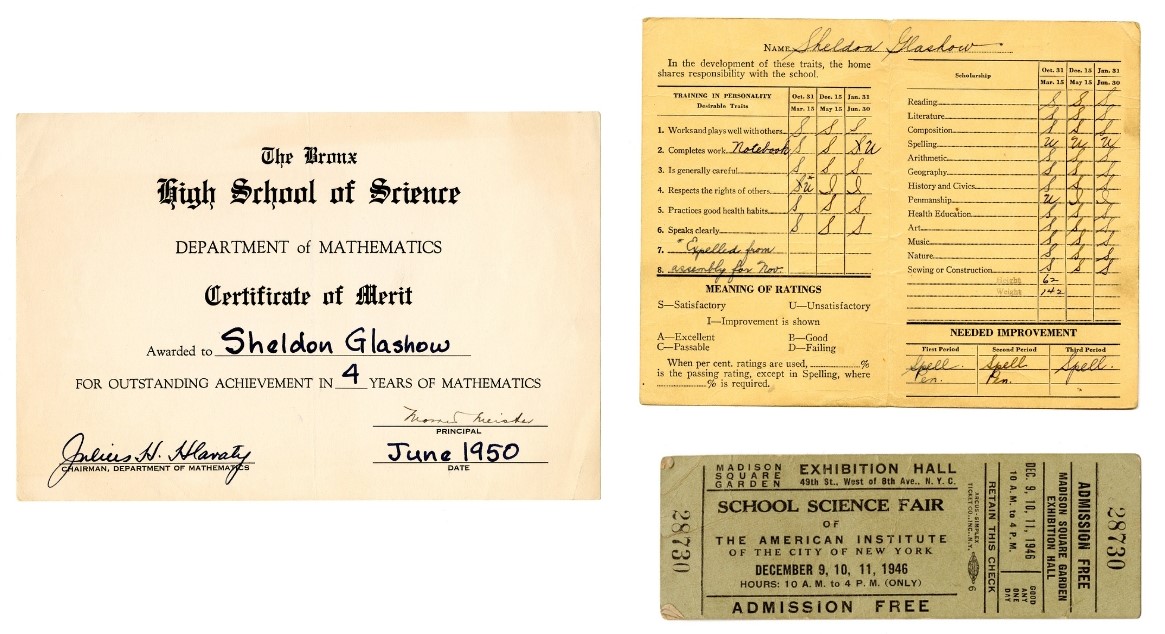 The Bronx
High School of Science
DEPARTMENT of MATHEMATICS
Certificate of Merit
Awarded to Sheldon Glashow
FOR OUTSTANDING ACHIEVEMENT IN 4 YEARS OF MATHEMATICS
Morris Meister
PRINCIPAL
Julius H. Hlavaty
CHAIRMAN, DEPARTMENT OF MATHEMATICS
June 1950
DATE
NAME Sheldon Glashow
In the development of these traits, the home
shares responsibility with the school.
TRAINING IN PERSONALITY
Desirable Traits
Oct. 31 Dec. 15 Jan. 31
Mar. 15 May 15 Jun. 30
1. Works and plays well with others S S S
2. Completes work. Notebook S S S U
3. Is generally careful S S S
4. Respects the rights of others S U I I
5. Practices good health habits S S S
6. Speaks clearly S S S
7. "Expelled from
8. assembly for Nov.
MEANING OF RATINGS
S—Satisfactory U—Unsatisfactory
I—Improvement is shown
A—Excellent B—Good
C—Passable D—Failing
When per cent. ratings are used, %
is the passing rating, except in Spelling, where
% is required.
Scholarship
Oct. 31 Dec. 15 Jan. 31
Mar. 15 May 15 Jun. 30
Reading S S S
Literature S S S
Composition S S S
Spelling U U U
Arithmetic S S S
Geography S S S
History and Civics S S S
Penmanship U I I
Health Education S S S
Art S S S
Music S S S
Nature S S S
Sewing or Construction S S S
Height 62
Weight 142
NEEDED IMPROVEMENT
First Period Second Period Third Period
Spell. Spell. Spell.
Pen. Pen.
28730
MADISON SQUARE GARDEN
EXHIBITION HALL
49th St., West of 8th Ave., N. Y. C.
SCHOOL SCIENCE FAIR
OF
THE AMERICAN INSTITUTE
OF THE CITY OF NEW YORK
DECEMBER 9, 10, 11, 1946
HOURS: 10 A. M. to 4 P. M. (ONLY)
ADMISSION FREE
ARCUS-SIMPLEX
TICKET CO., INC., N.Y.
6
RETAIN THIS CHECK
DEC. 9, 10, 11, 1946
10 A. M. to 4 P. M.
GOOD
ANY
ONE
DAY
MADISON SQUARE GARDEN
EXHIBITION HALL
ADMISSION FREE
28730